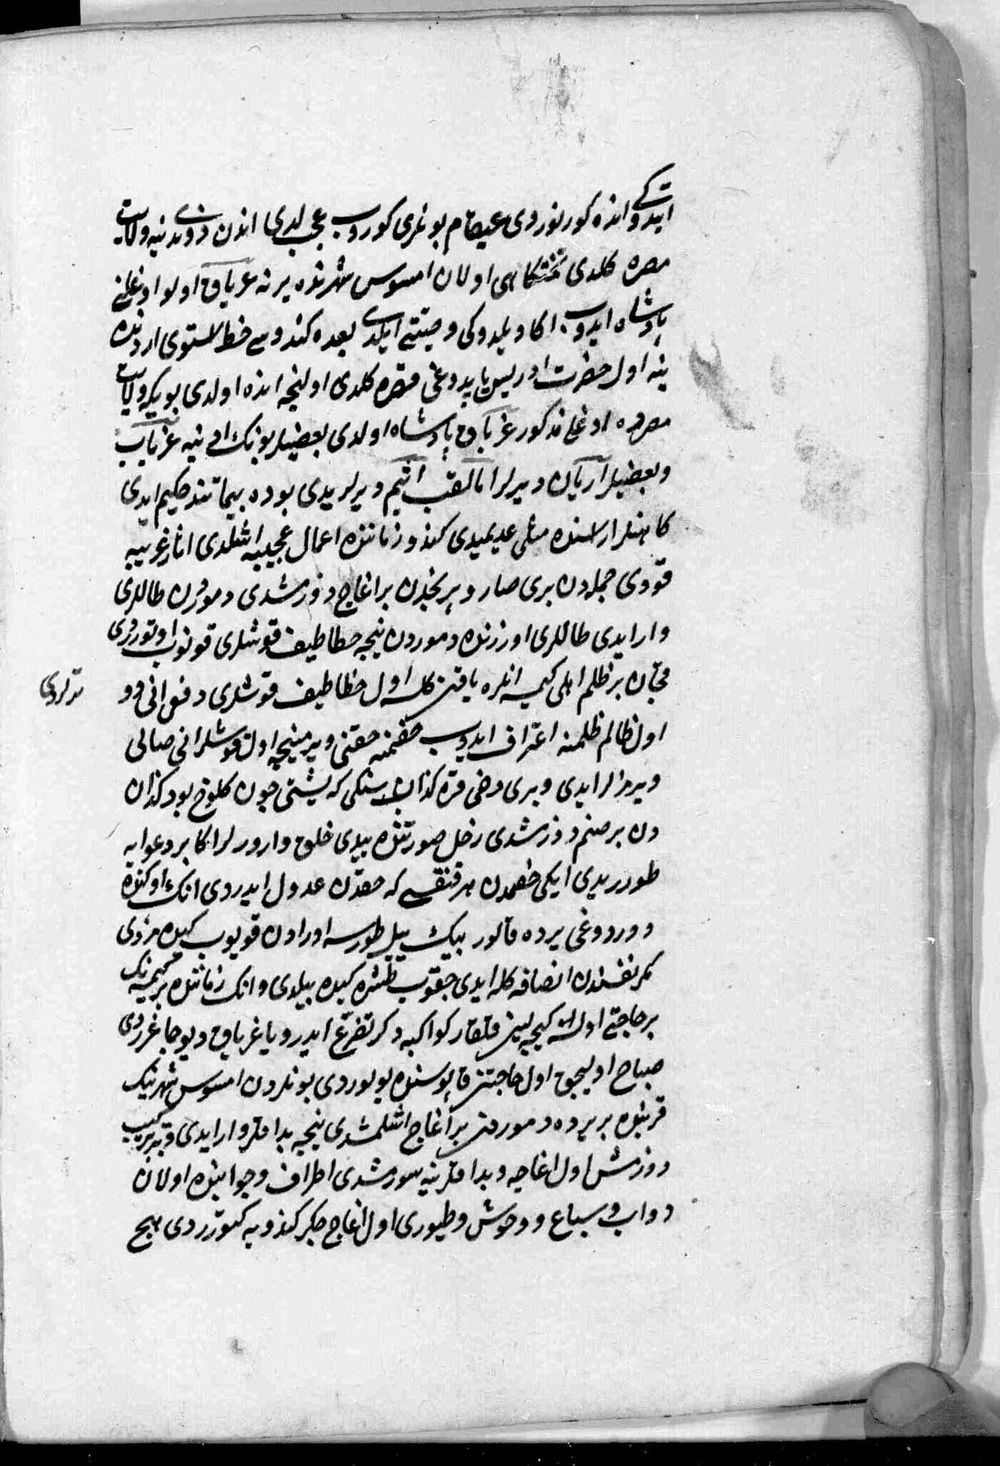 ایتدکی انده کورنوردی عیقام بونلری کوروب عجبلدی اندن دوندی ینه ولایت
مصره کلدی تختکاهی اولان امسوس شهرنده یرنه عریاق اولو اوغلنی
پادشاه ایدوب اکا دیلدوکی وصیتی ایلدی بعده کندوسی خط استوی اردنده
ینه اول حضرت ادریس یاپدوغی قصره کلدی اولنجه انده اولدی بویکه ولایت
مصرده اوغلی مذکور عریاق پادشاه اولدی بعضیلر بونک ادینه عریاب
وبعضیلر اریاق دیرلر اما لقب اثیم دیرلریدی بو ده بیمانند حکیم ایدی
کاهنلر اراسنده مثلی عدیمیدی کندو زماننده اعمال عجیبه اشلدی اثار غریبه
قودی جملدن بری صارو پرنجدن بر اغاج دوزمشدی دموردن طاللری
وارایدی طاللری اوزرنده دموردن نیجه خطاطیف قوشلری قونوب اوتوررلردی
قچان بر ظلم اهلی کیمسه انلره یاقین کلسه اول خطاطیف قوشلری دفعی انی دو
ترلردی
اول ظالم ظلمنه اعتراف ایدوب خصمنه حقنی ویرمینجه اول قوشلر انی صالی
ویرمزلر ایدی وبری دخی قره کذان سنکی که پشتی چون کلوخ بود کذان
دن بر صنم دوزمشدی زحل صورتنده بیدی خلق وارورلر اکا بر دعوایه
طوررریدی ایکی خصمدن هر قنقسی که حقدن عدول ایدردی انک اوکنده
دوردوغی یرده قالور بیک ییل طورسه اورادن قوپوب کیده مزدی
مکر نفسندن انصافه کله ایدی چقوب طشره کیده بیلدی وانک زماننده بر کیمسه نک
بر حاجتی اولسه کیجه لین قلقار کواکبه دکر تضرع ایدر ویا عریاق دیو چاغرردی
صباح اولیجق اول حاجتنی قاپوسنده بولوردی بونلردن امسوس شهرینک
قربنده بر یرده دموردن بر اغاج اشلمشدی نیجه بداقلر وارایدی وبر ترکیب
دوزمش اول اغاجه وبداقلرینه سورمشدی اطراف وجوانبنده اولان
دواب وسباع ووحوش وطیوری اول اغاج چکر کندویه کتوررردی هیچ